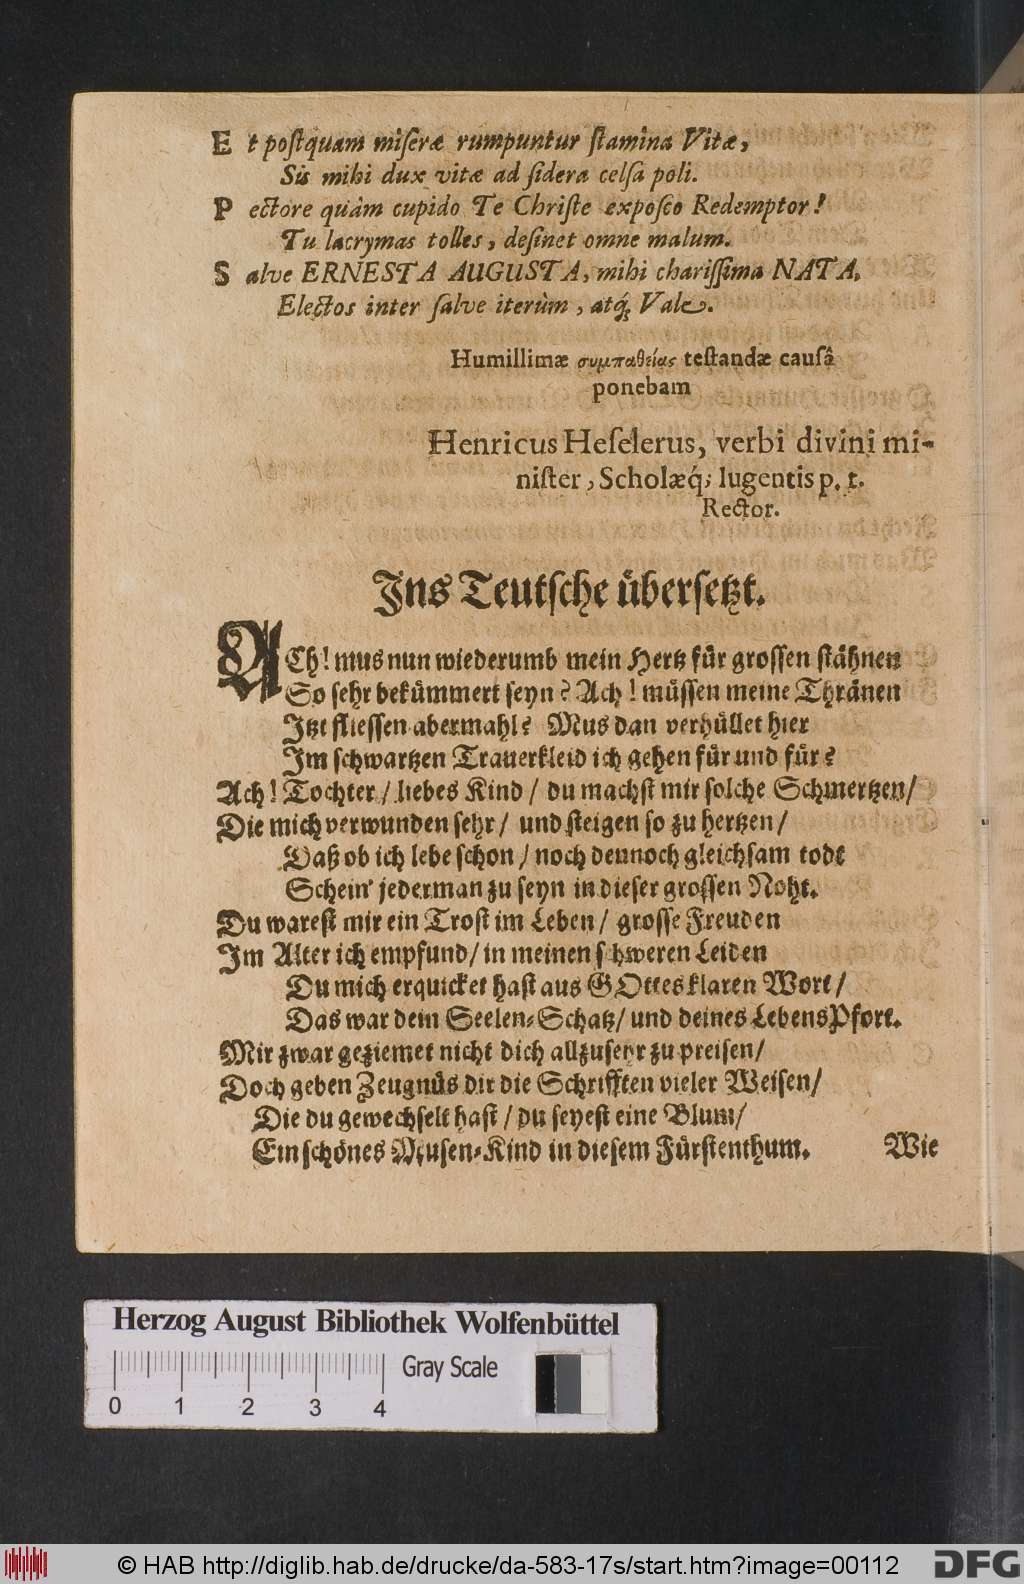 Et poſtquam miſeræ rumpuntur ſtamina Vitæ,
Sis mihi dux vitæ ad ſidera celſa poli.
Pectore quàm cupido Te Chriſte expoſco Redemptor!
Tu lacrymas tolles, deſinet omne malum.
Salve ERNESTA AUGUSTA, mihi chariſſima NATA,
Electos inter ſalve iterùm, atq́; Vale.
Humillimæ συμπαθείας teſtandæ causâ
ponebam
Henricus Heſelerus, verbi divini mi-
niſter, Scholæq́; lugentis p. t.
Rector.
Ins Teutſche überſetzt.
ACh! mus nun wiederumb mein Hertz für groſſen ſtähnen
So ſehr bekümmert ſeyn? Ach! müſſen meine Thränen
Itzt flieſſen abermahl? Mus dan verhüllet hier
Im ſchwartzen Trauerkleid ich gehen für und für?
Ach! Tochter / liebes Kind / du machſt mir ſolche Schmertzen/
Die mich verwunden ſehr / und ſteigen ſo zu hertzen /
Daß ob ich lebe ſchon / noch dennoch gleichſam todt
Schein' jederman zu ſeyn in dieſer groſſen Noht.
Du wareſt mir ein Troſt im Leben / groſſe Freuden
Im Alter ich empfund / in meinen ſchweren Leiden
Du mich erquicket haſt aus GOttes klaren Wort /
Das war dem Seelen-Schatz / und deines Lebens Pfort.
Mir zwar geziemet nicht dich allzuſehr zu preiſen /
Doch geben Zeugnüs dir die Schrifften vieler Weiſen /
Die du gewechſelt haſt / du ſeyeſt eine Blum /
Ein ſchönes Muſen-Kind in dieſem Fürſtenthum.
Wie
Herzog August Bibliothek Wolfenbüttel
Gray Scale
0 1 2 3 4
© HAB http://diglib.hab.de/drucke/da-583-17s/start.htm?image=00112
DFG